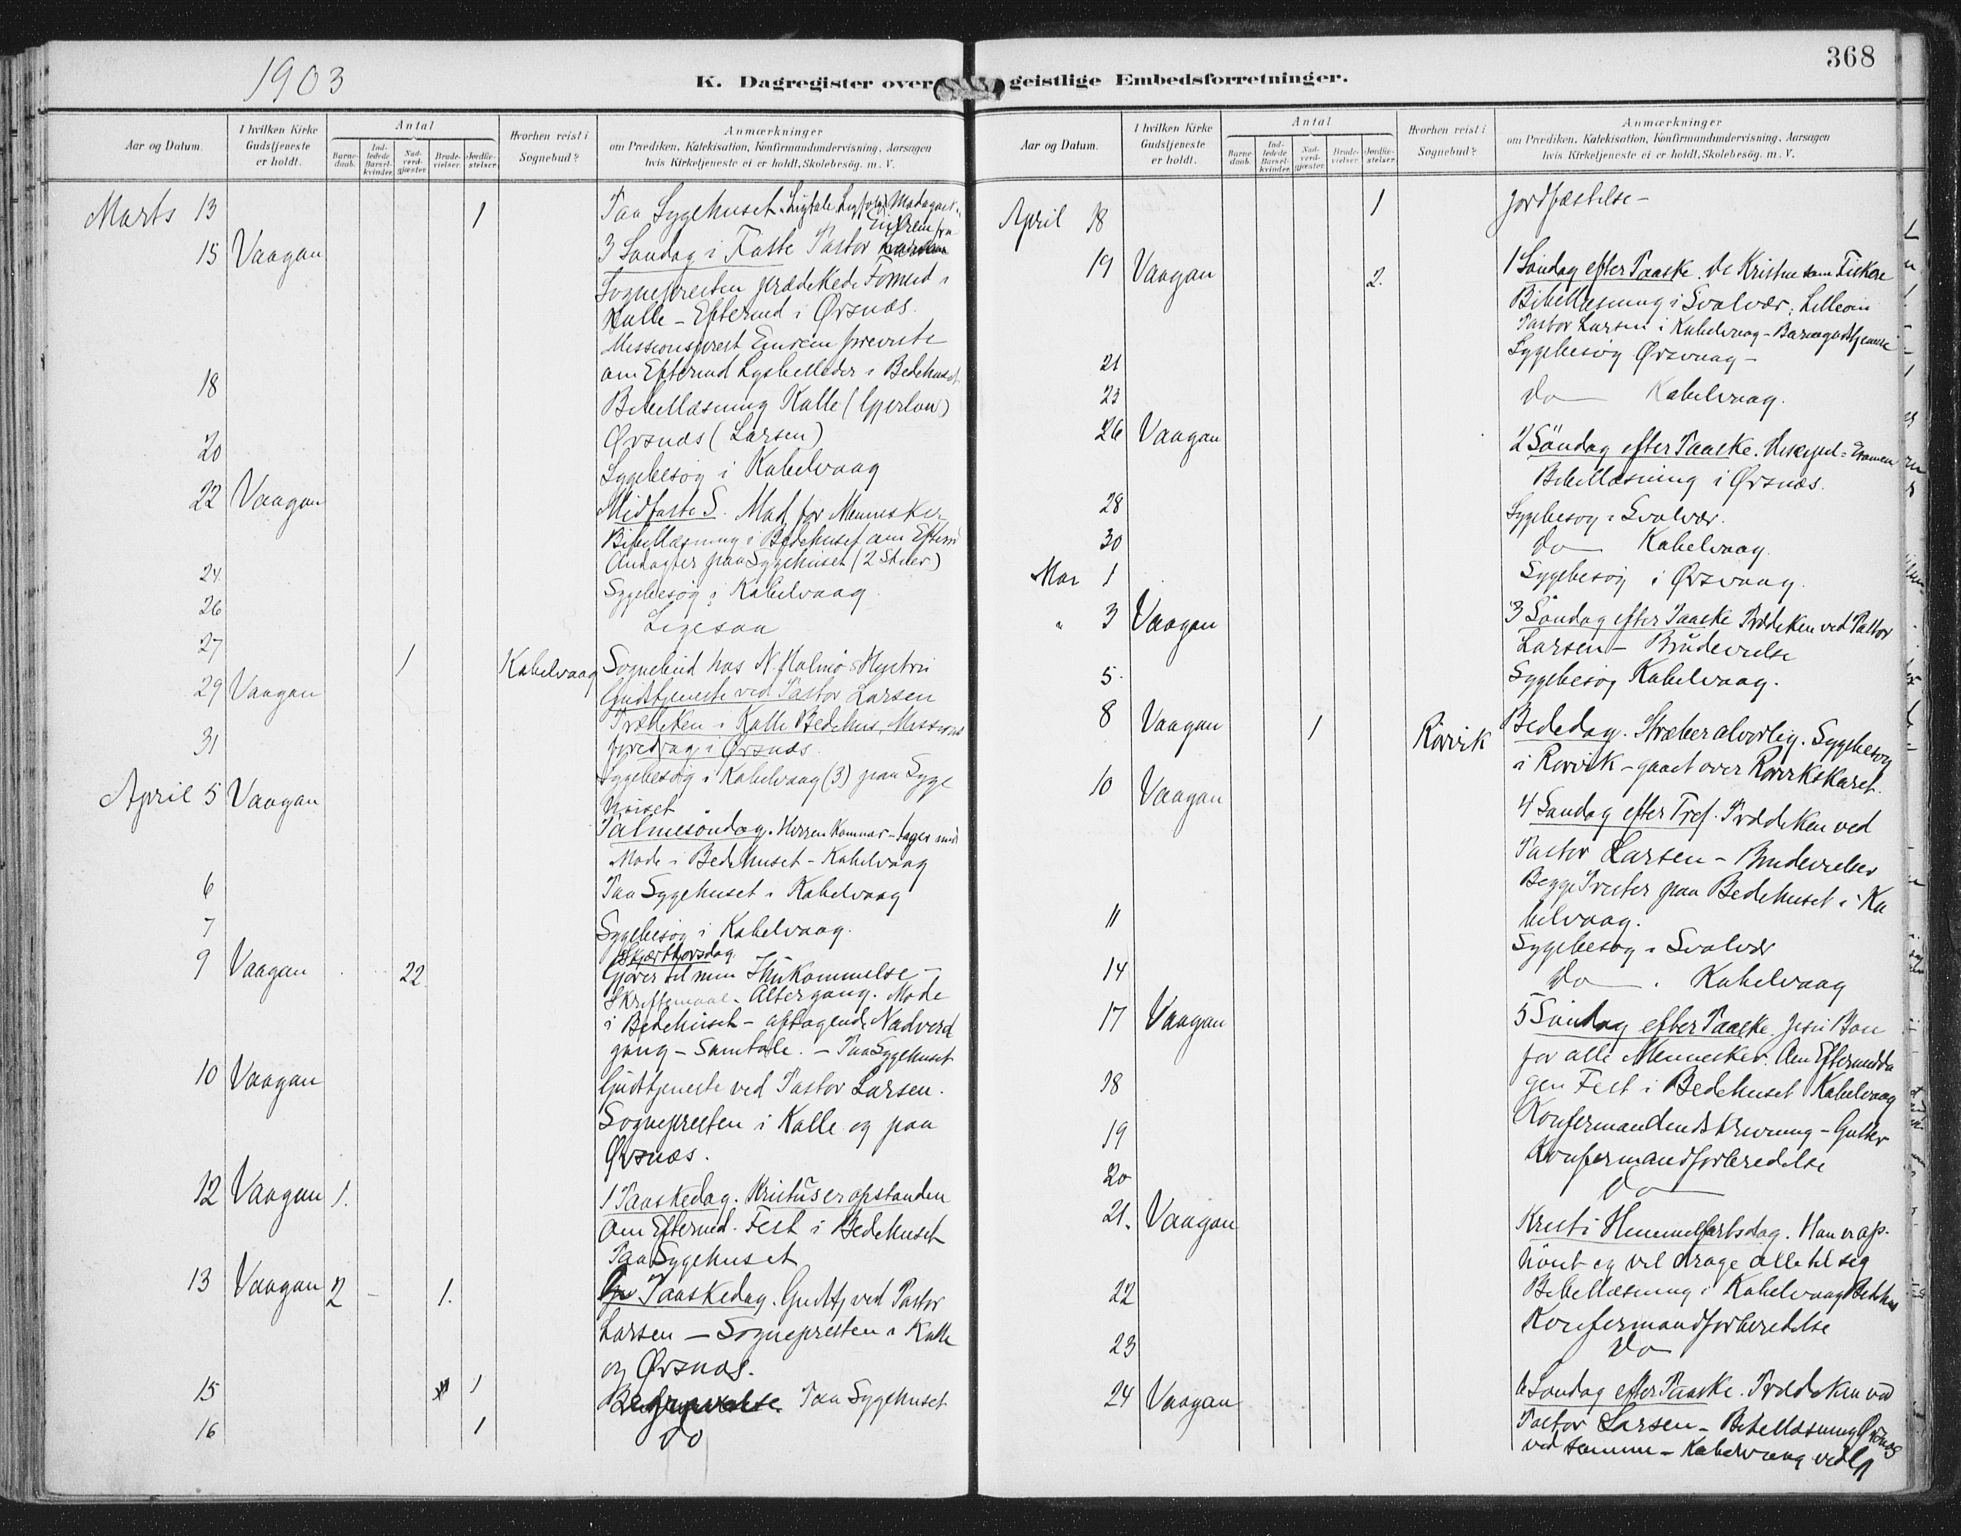 1903
K. Dagregister over geistlige Embedsforretninger.
368
Aar og Datum.
I hvilken Kirke Gudstjeneste er holdt.
Antal
Barnedaab.
Indledede Barselkvinder.
Nadverdgjæster.
Brudevielser.
Jordfæstelser.
Hvorhen reist i Sognebud?
Anmærkninger
om Prædiken, Katekisation, Konfirmandundervisning, Aarsagen
hvis Kirketjeneste ei er holdt, Skolebesög. m. V.
Marts 13 1 Paa Sygehuset.
15 Vaagan 3 Søndag i Faste Pastor
Sognepresten prædikede Formd i
Kalle – Eftermd i Ørsnæs.
Missionsprest Einrem foreviste
om Eftermd Lysbilleder i Bedehuset
18 Bibellæsning Kalle (Gjerlow)
Ørsnæs (Larsen)
20 Sygebesøg i Kabelvaag
22 Vaagan Midfaste S. Mad for Mennesker
Bibellæsning i Bedehuset om Efterm
Andagter paa Sygehuset (2 Steder)
24 Sygebesøg i Kabelvaag
26 Ligesaa
27 1 Kabelvaag Sognebud hos N. Holmø's Hustru
29 Vaagan Gudstjeneste ved Pastor Larsen
Prædiken i Kalle Bedehus, Missions
foredrag i Ørsnæs.
31 Sygebesøg i Kabelvaag (3) paa Syge
huset
April 5 Vaagan Palmesöndag. Herren kommer –
Møde i Bedehuset – Kabelvaag
6 Paa Sygehuset i Kabelvaag
7 Sygebesøg i Kabelvaag.
9 Vaagan 22 Skjærthorsdag
Gjører til min Ihukommelse –
Skriftemaal – Altergang. Møde
i Bedehuset – aftagende Nadverd
gang – Samtale. – Paa Sygehuset
10 Vaagan Gudstjeneste ved Pastor Larsen.
Sognepresten i Kalle og paa
Ørsnæs.
12 Vaagan 1. 1 Paaskedag. Kristus er opstanden
Om Eftermd. Fest i Bedehuset
Paa Sygehuset
13 Vaagan 2 – 1. Paaskedag. Gudstj ved Pastor
Larsen – Sognepresten i Kalle
og Ørsnæs.
15 1 Begravelse. Paa Sygehuset
16 1 do
Aar og Datum.
I hvilken Kirke Gudstjeneste er holdt.
Antal
Barnedaab.
Indledede Barselkvinder.
Nadverdgjæster.
Brudevielser.
Jordfæstelser.
Hvorhen reist i Sognebud?
Anmærkninger
om Prædiken, Katekisation, Konfirmandundervisning, Aarsagen
hvis Kirketjeneste ei er holdt, Skolebesög. m. V.
April 18 1 Jordfæstelse –
19 Vaagan 2. 1 Søndag efter Paaske. De Kristne som Fiskere
Bibellæsning i Svolvær,
Pastor Larsen i Kabelvaag –
21 Sygebesøg Ørsvaag –
23 Do — Kabelvaag.
26 Vaagan 2 Söndag efter Paaske.
Bibellæsning i Ørsnæs.
28 Sygebesøg i Svolvær.
30 do — Kabelvaag.
Mai 1 Sygebesøg i Ørsvaag.
" 3 Vaagan 3 Söndag efter Paaske Prædiken ved Pastor
Larsen – Brudevielse
5. Sygebesøg Kabelvaag.
8 Vaagan 1 Rørvik Bededag. Stræber alvorlig. Sygebesøg
i Rørvik – gaaet over Rørvikskaret.
10 Vaagan 4 Søndag efter Prædiken ved
Pastor Larsen – Brudevielser
Begge Prester paa Bedehuset i Ka
belvaag.
11 Sygebesøg i Svolvær
14 Do — . Kabelvaag
17 Vaagan 5 Søndag efter Paaske. Jesu Bøn
for alle Mennesker. Om Eftermidda
gen Fest i Bedehuset Kabelvaag
18 Konfirmandindskrivning – Gutter
19 Konfirmandforberedelse
20 Do —
21. Vaagan Kristi Himmelfartsdag. Han er op-
höiet og vil drage alle til sig
Bibellæsning i Kabelvaag Bedehus
22 Konfirmandforberedelse
23 Do
24 Vaagan 6 Søndag efter Paaske. Prædiken ved
Pastor Larsen – Bibellæsning Ørsnæs
ved samme – Kabelvaag ved